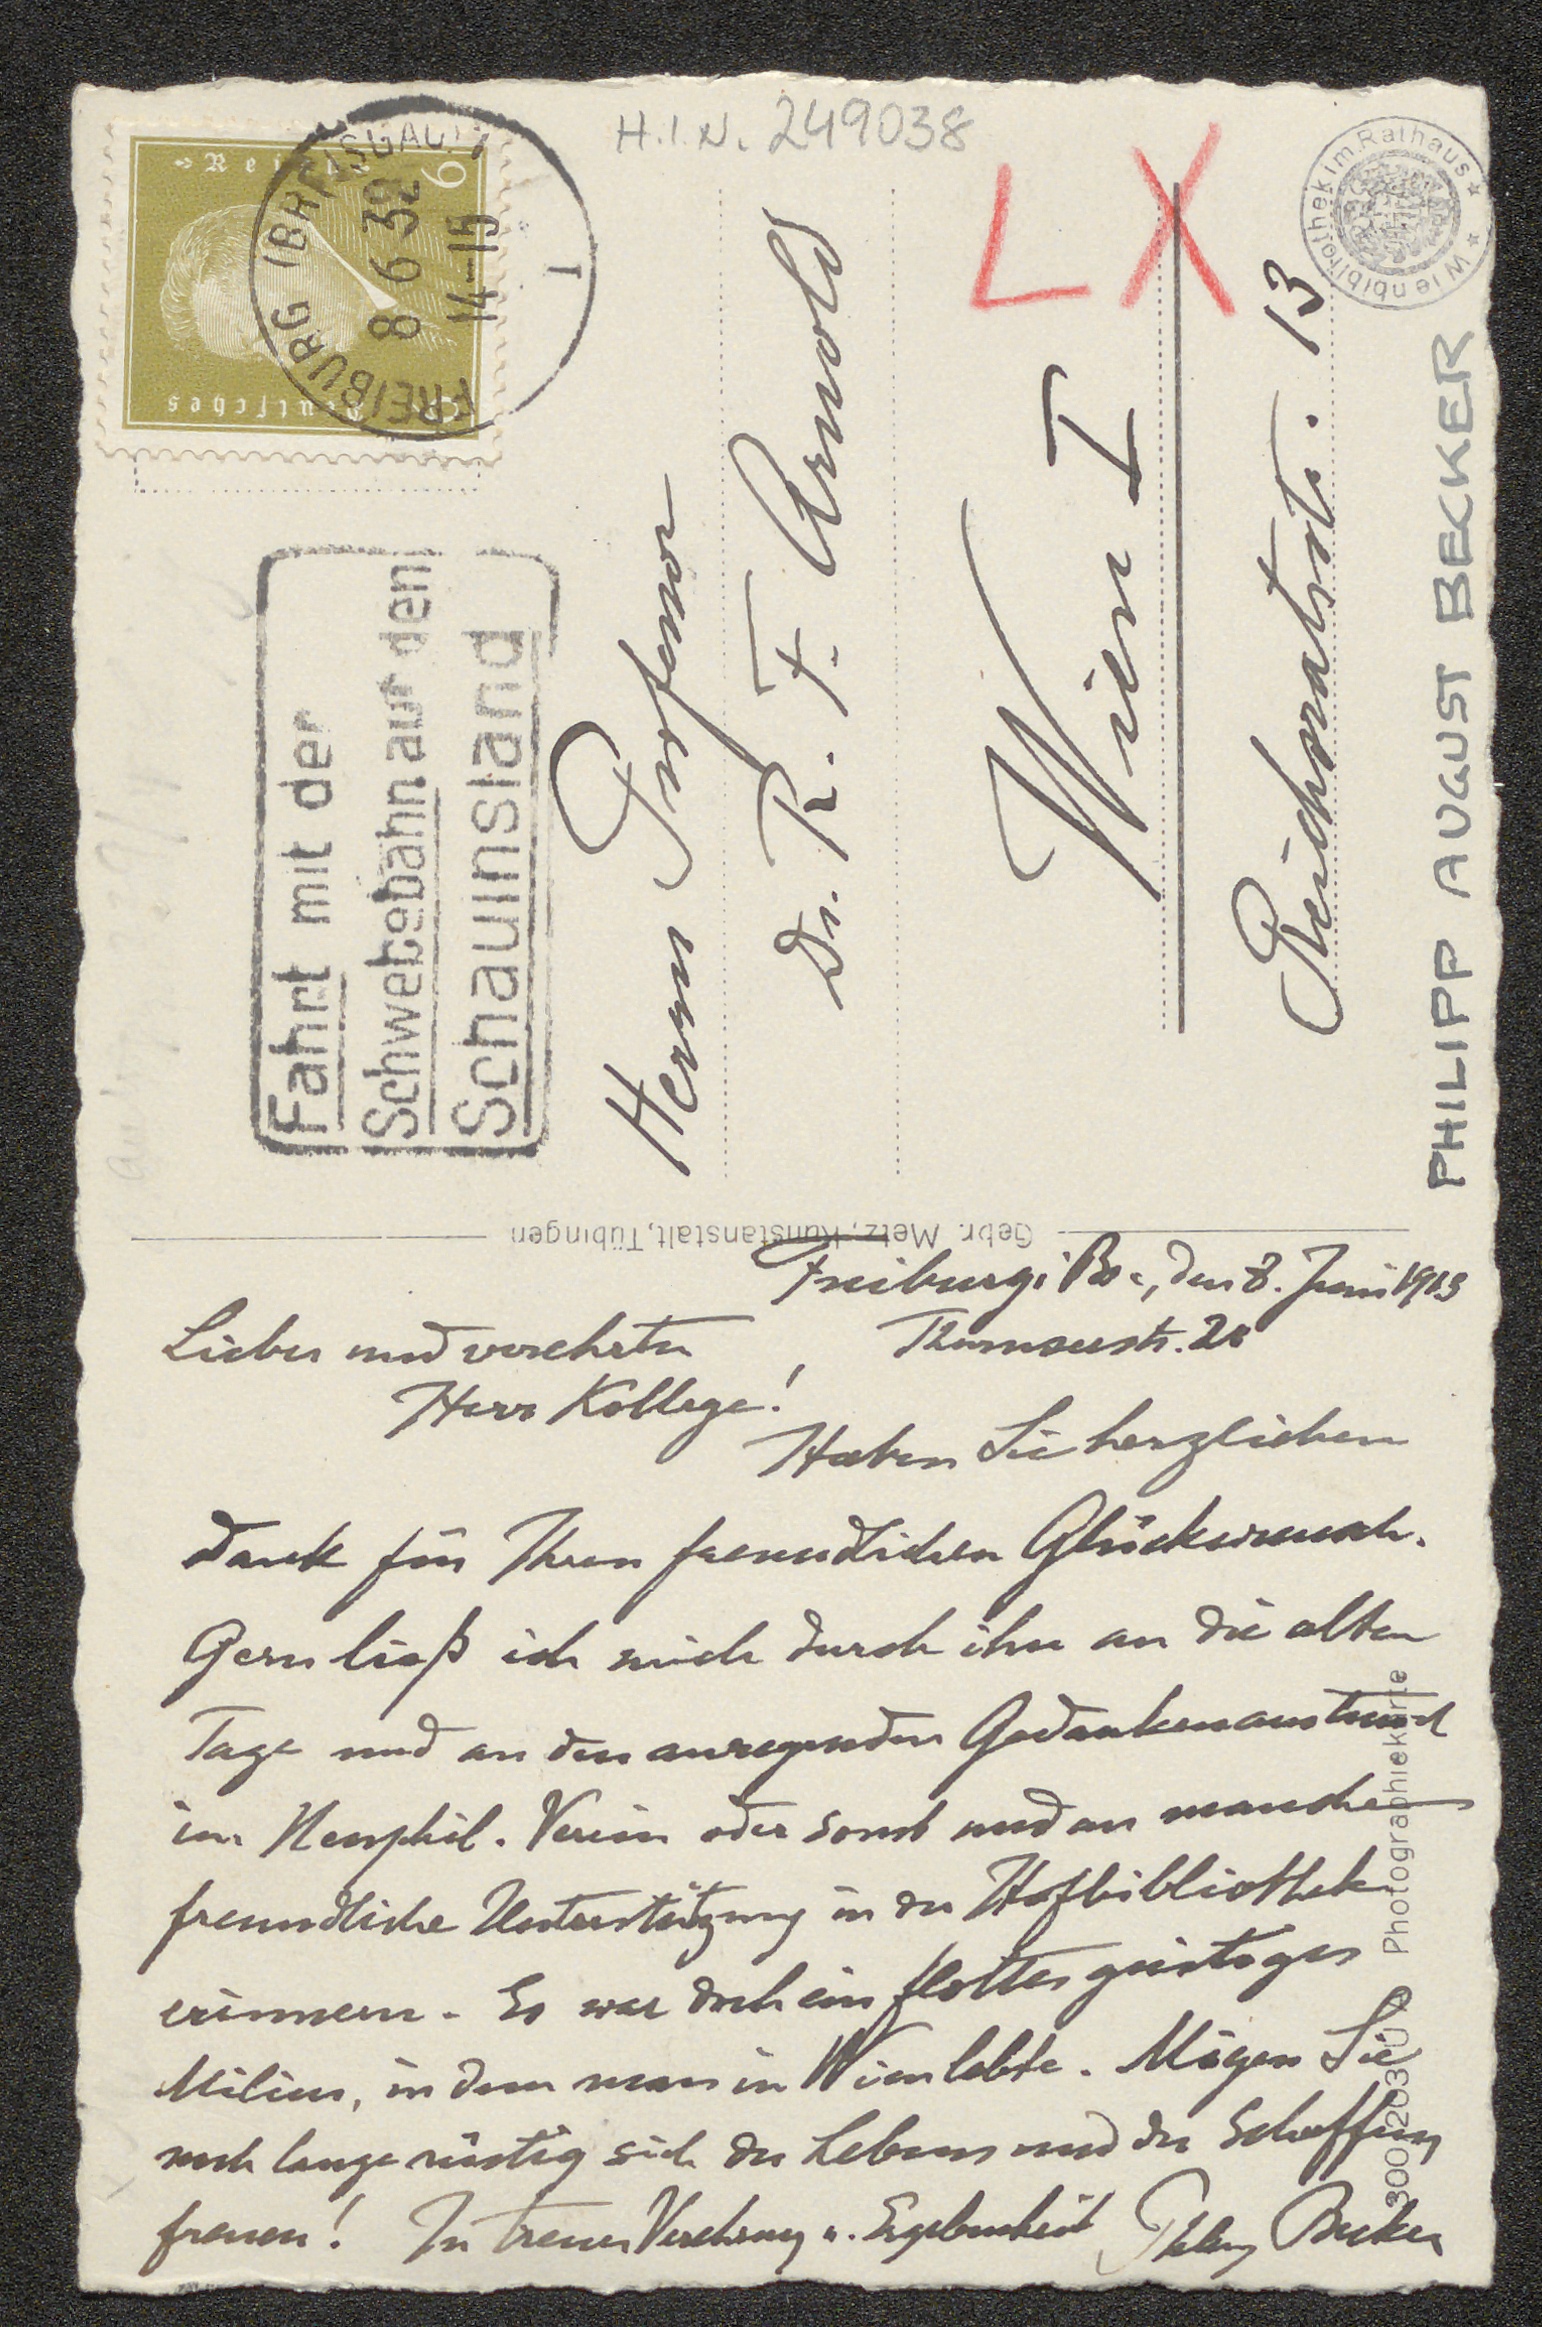 H.I.N. 249038
LX
Wienbibliothek im Rathaus
Deutsches Reich
6
FREIBURG (BREISGAU)
8 6 32
14-15
1
Fahrt mit der
Schwebebahn auf den
Schauinsland
Herrn Professor
Dr. R. F. Arnold
Wien I
Reichsratsstr. 13
PHILIPP AUGUST BECKER
Gebr. Metz, Kunstanstalt, Tübingen
Freiburg i. Br., den 8. Juni
Lieber und verehrter
Herr Kollege!
Haben Sie herzlichen
Dank für Ihren freundlichen Glückwunsch.
Gern ließ ich mich durch ihn an die alten
Tage und an den anregenden Gedankenaustausch
im Neuphil. Verein oder sonst und an manche
freundliche Unterstützung in der Hofbibliothek
erinnern. Es war doch ein flottes geistiges
Milieu, in dem man in Wien lebte. Mögen Sie
noch lange rüstig sich des Lebens und des Schaffens
freuen! In treuer Verehrung u. Ergebenheit Becker
Photographiekarte